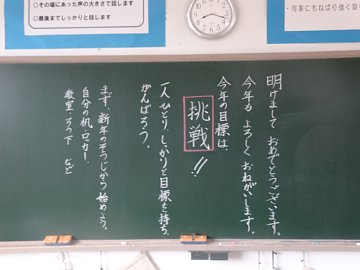 ○その場にあった声の大きさで話します
○最後までしっかりと話します
・何事にもねばり強く
明けまして おめでとうございます。
今年も よろしく おねがいします。
今年の目標は、
挑戦!!
一人ひとり、しっかりと目標を持ち、
がんばろう。
まず、新年のそうじから始めよう。
自分の机、ロッカー、
教室 ろう下 など